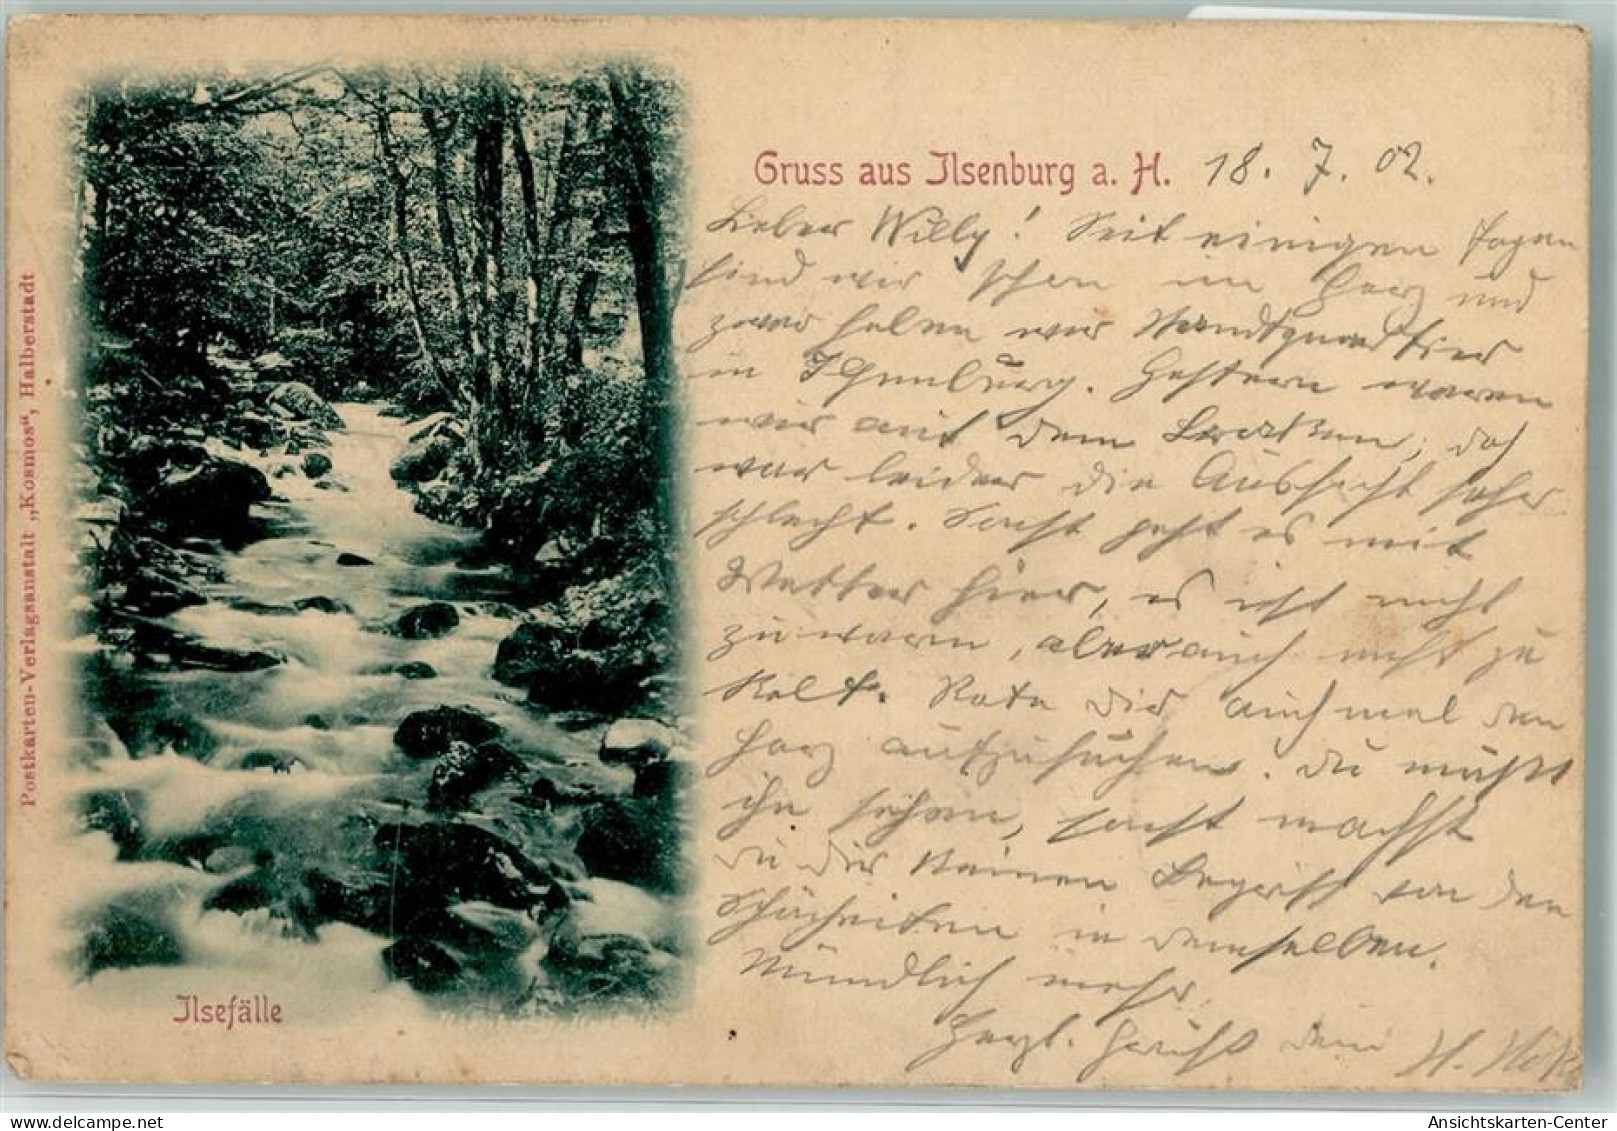 Gruss aus Ilsenburg a. H. 18. 7. 02.
Lieber Willy! Seit einigen Tagen
sind wir schon im Harz und
zwar haben wir Standquartier
in Ilsenburg. Gestern waren
wir auf dem Brocken, doch
war leider die Aussicht sehr
schlecht. Sonst geht es mit
Wetter hier, es ist nicht
zu warm, aber auch nicht zu
kalt. Rate Dir auch mal den
Harz aufzusuchen. Du mußt
ihn sehen, sonst machst
du dir keinen Begriff von den
Schönheiten in demselben.
Mündlich mehr.
Herzl. Grüßt dein H.
Ilsefälle
Postkarten-Verlagsanstalt „Kosmos“, Halberstadt
oldthing.net
Ansichtskarten-Center